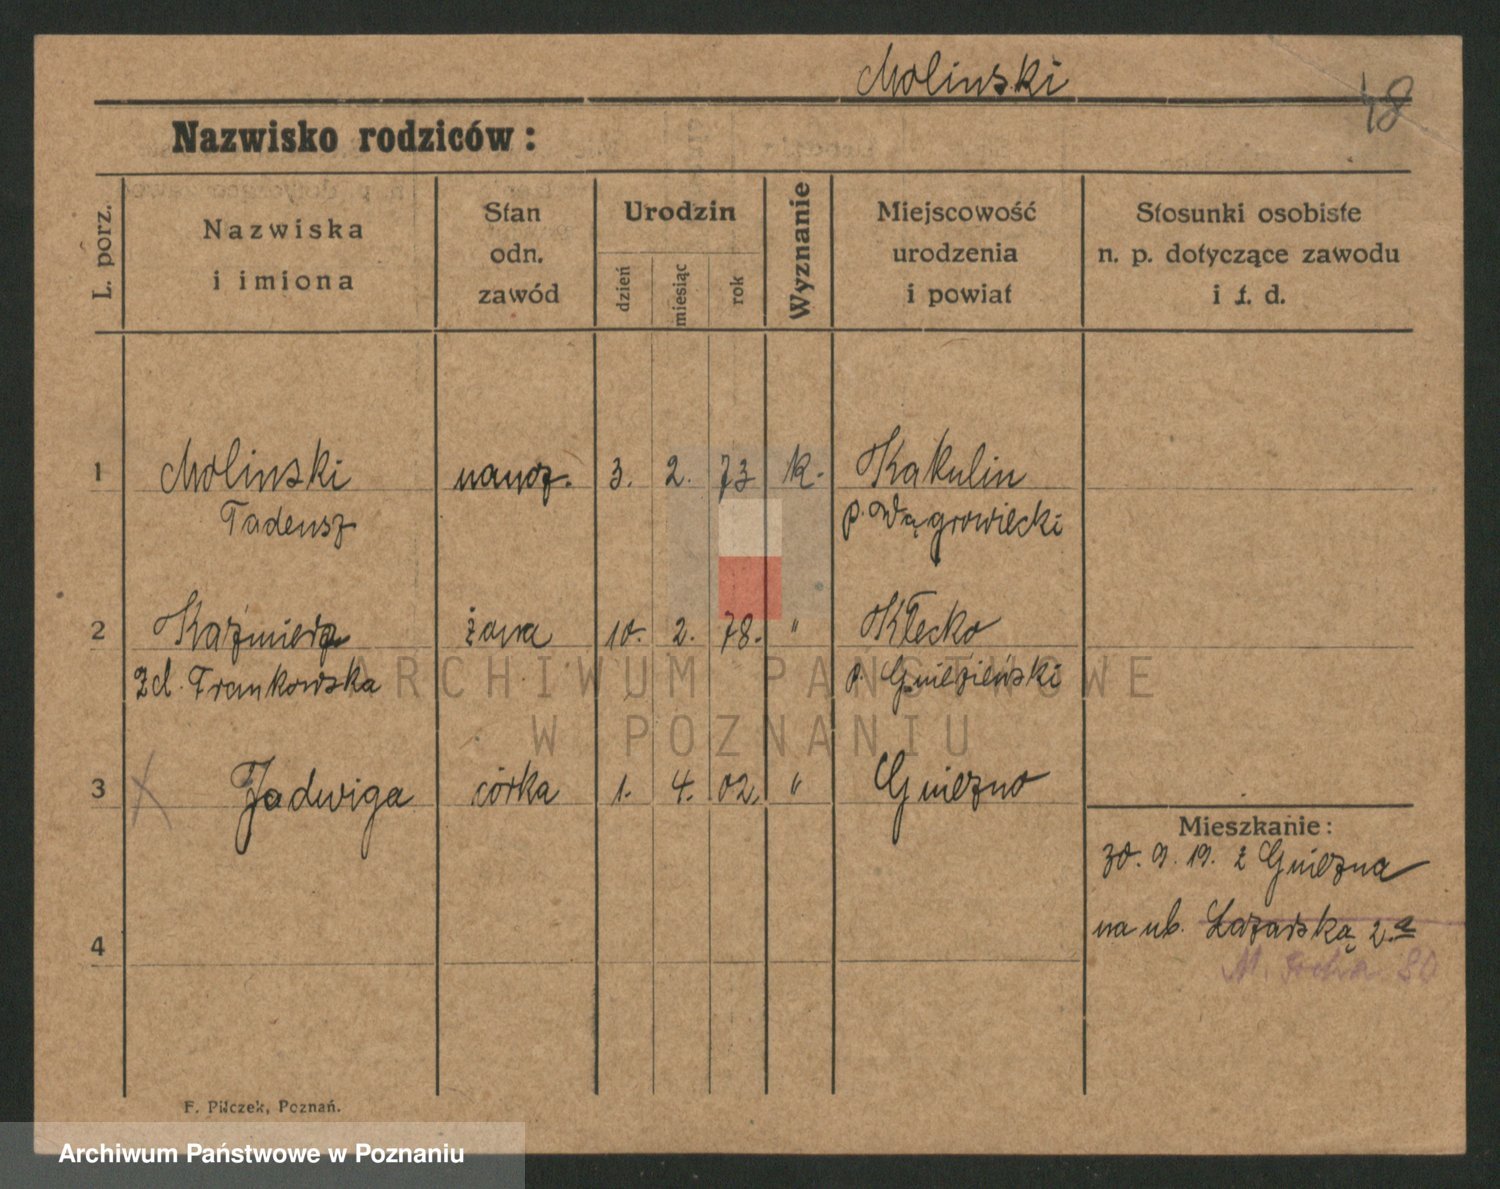 Molinski
48
Nazwisko rodziców:
L. porz.
Nazwiska
i imiona
Stan
odn.
zawód
Urodzin
dzień
miesiąc
rok
Wyznanie
Miejscowość
urodzenia
i powiat
Stosunki osobiste
n. p. dotyczące zawodu
i t. d.
1 Molinski naucz. 3. 2. 73 k. Kakulin
Tadeusz p. Wągrowiecki
2 Kaźmiera żona 10. 2. 78. " Kłecko
zd. Frankowska p. Gnieźieński
ARCHIWUM PAŃSTWOWE
W POZNANIU
3 Jadwiga córka 1. 4. 02. " Gniezno
Mieszkanie:
30. 9. 19. z Gniezna
na ub. Łazarską 2.a
80
4
F. Pilczek, Poznań.
Archiwum Państwowe w Poznaniu